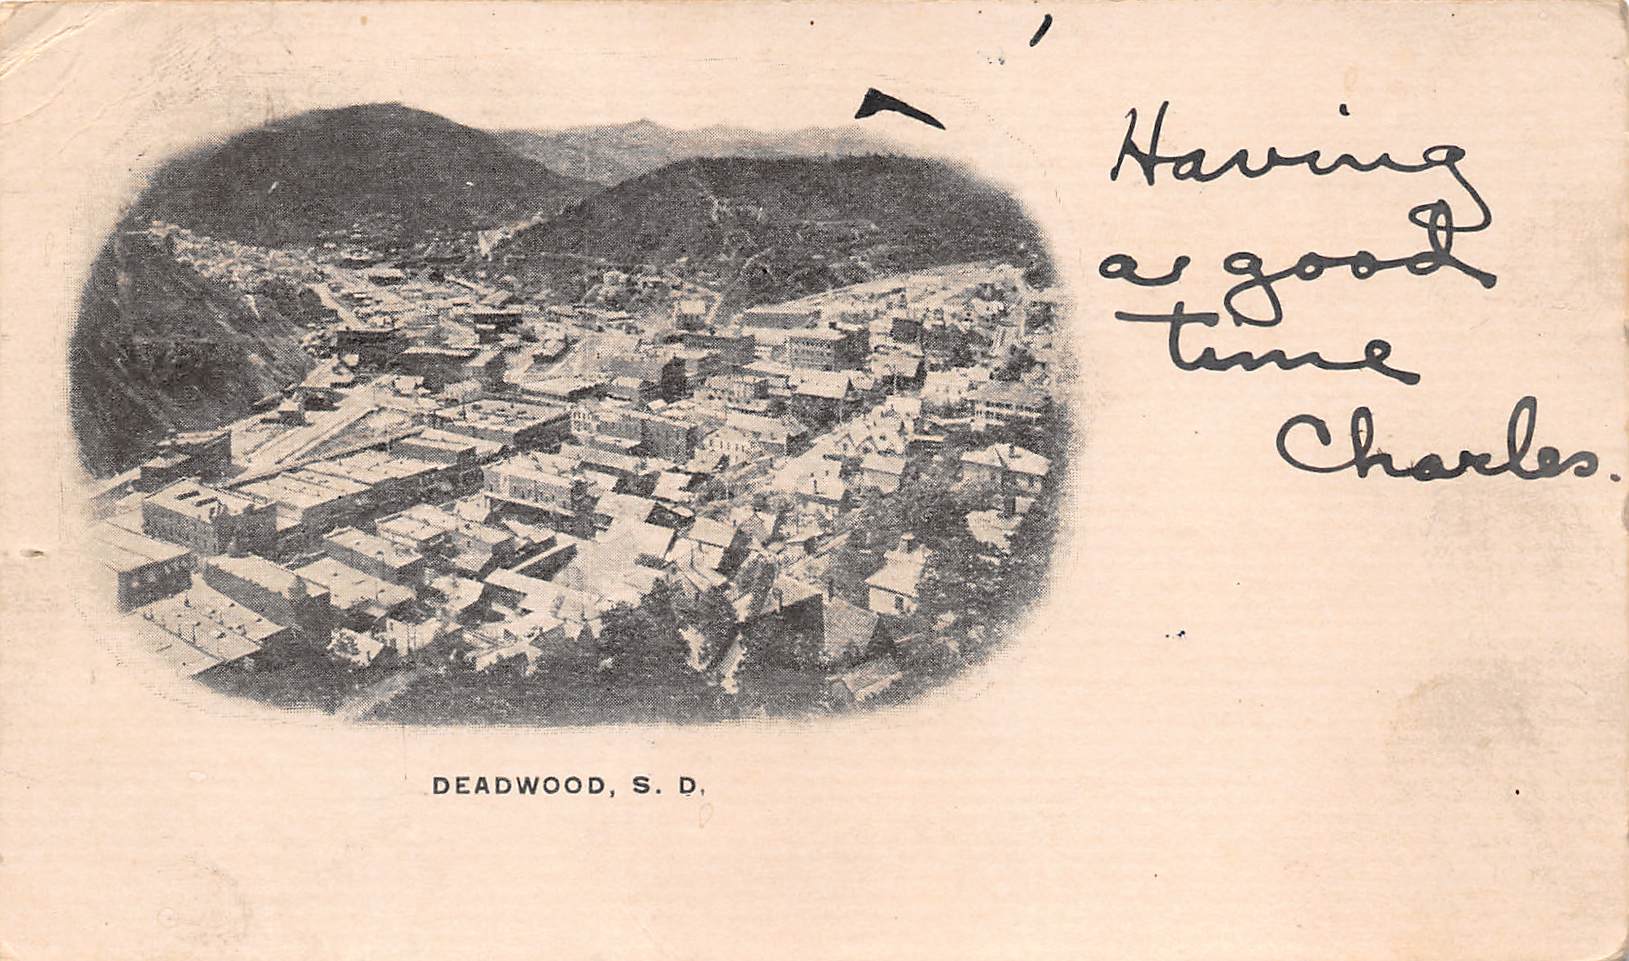 Having
a good
time
Charles.
DEADWOOD, S. D.